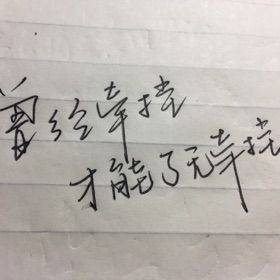 曾经牵挂
才能了无牵挂